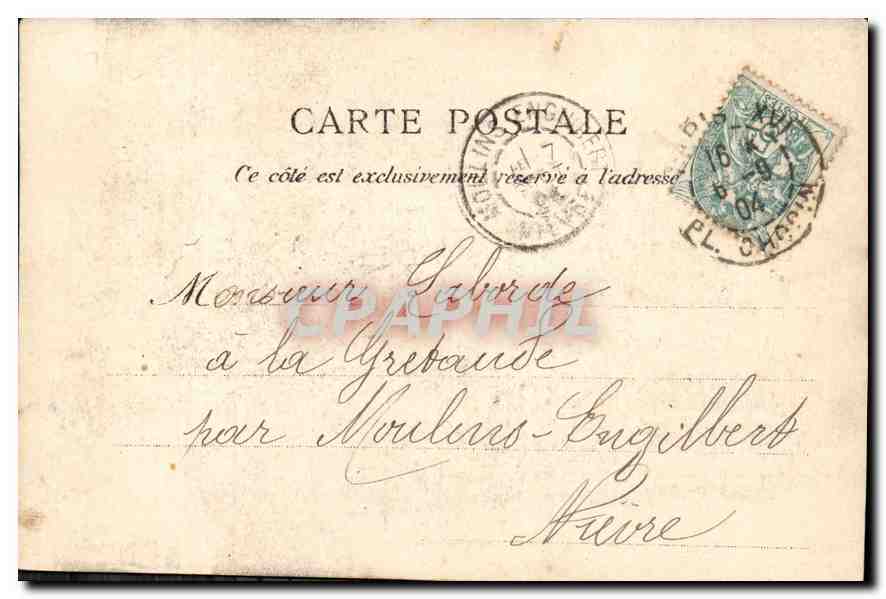 CARTE POSTALE
Ce côté est exclusivement réservé à l'adresse
MOULINS-ENGILBERT
7
04
NIÈVRE
PARIS-XVI
16
6 -9
04
PL. CHOPIN
Monsieur Laborde
à la Gretaude
par Moulins-Engilbert
Nièvre
CPAPHIL